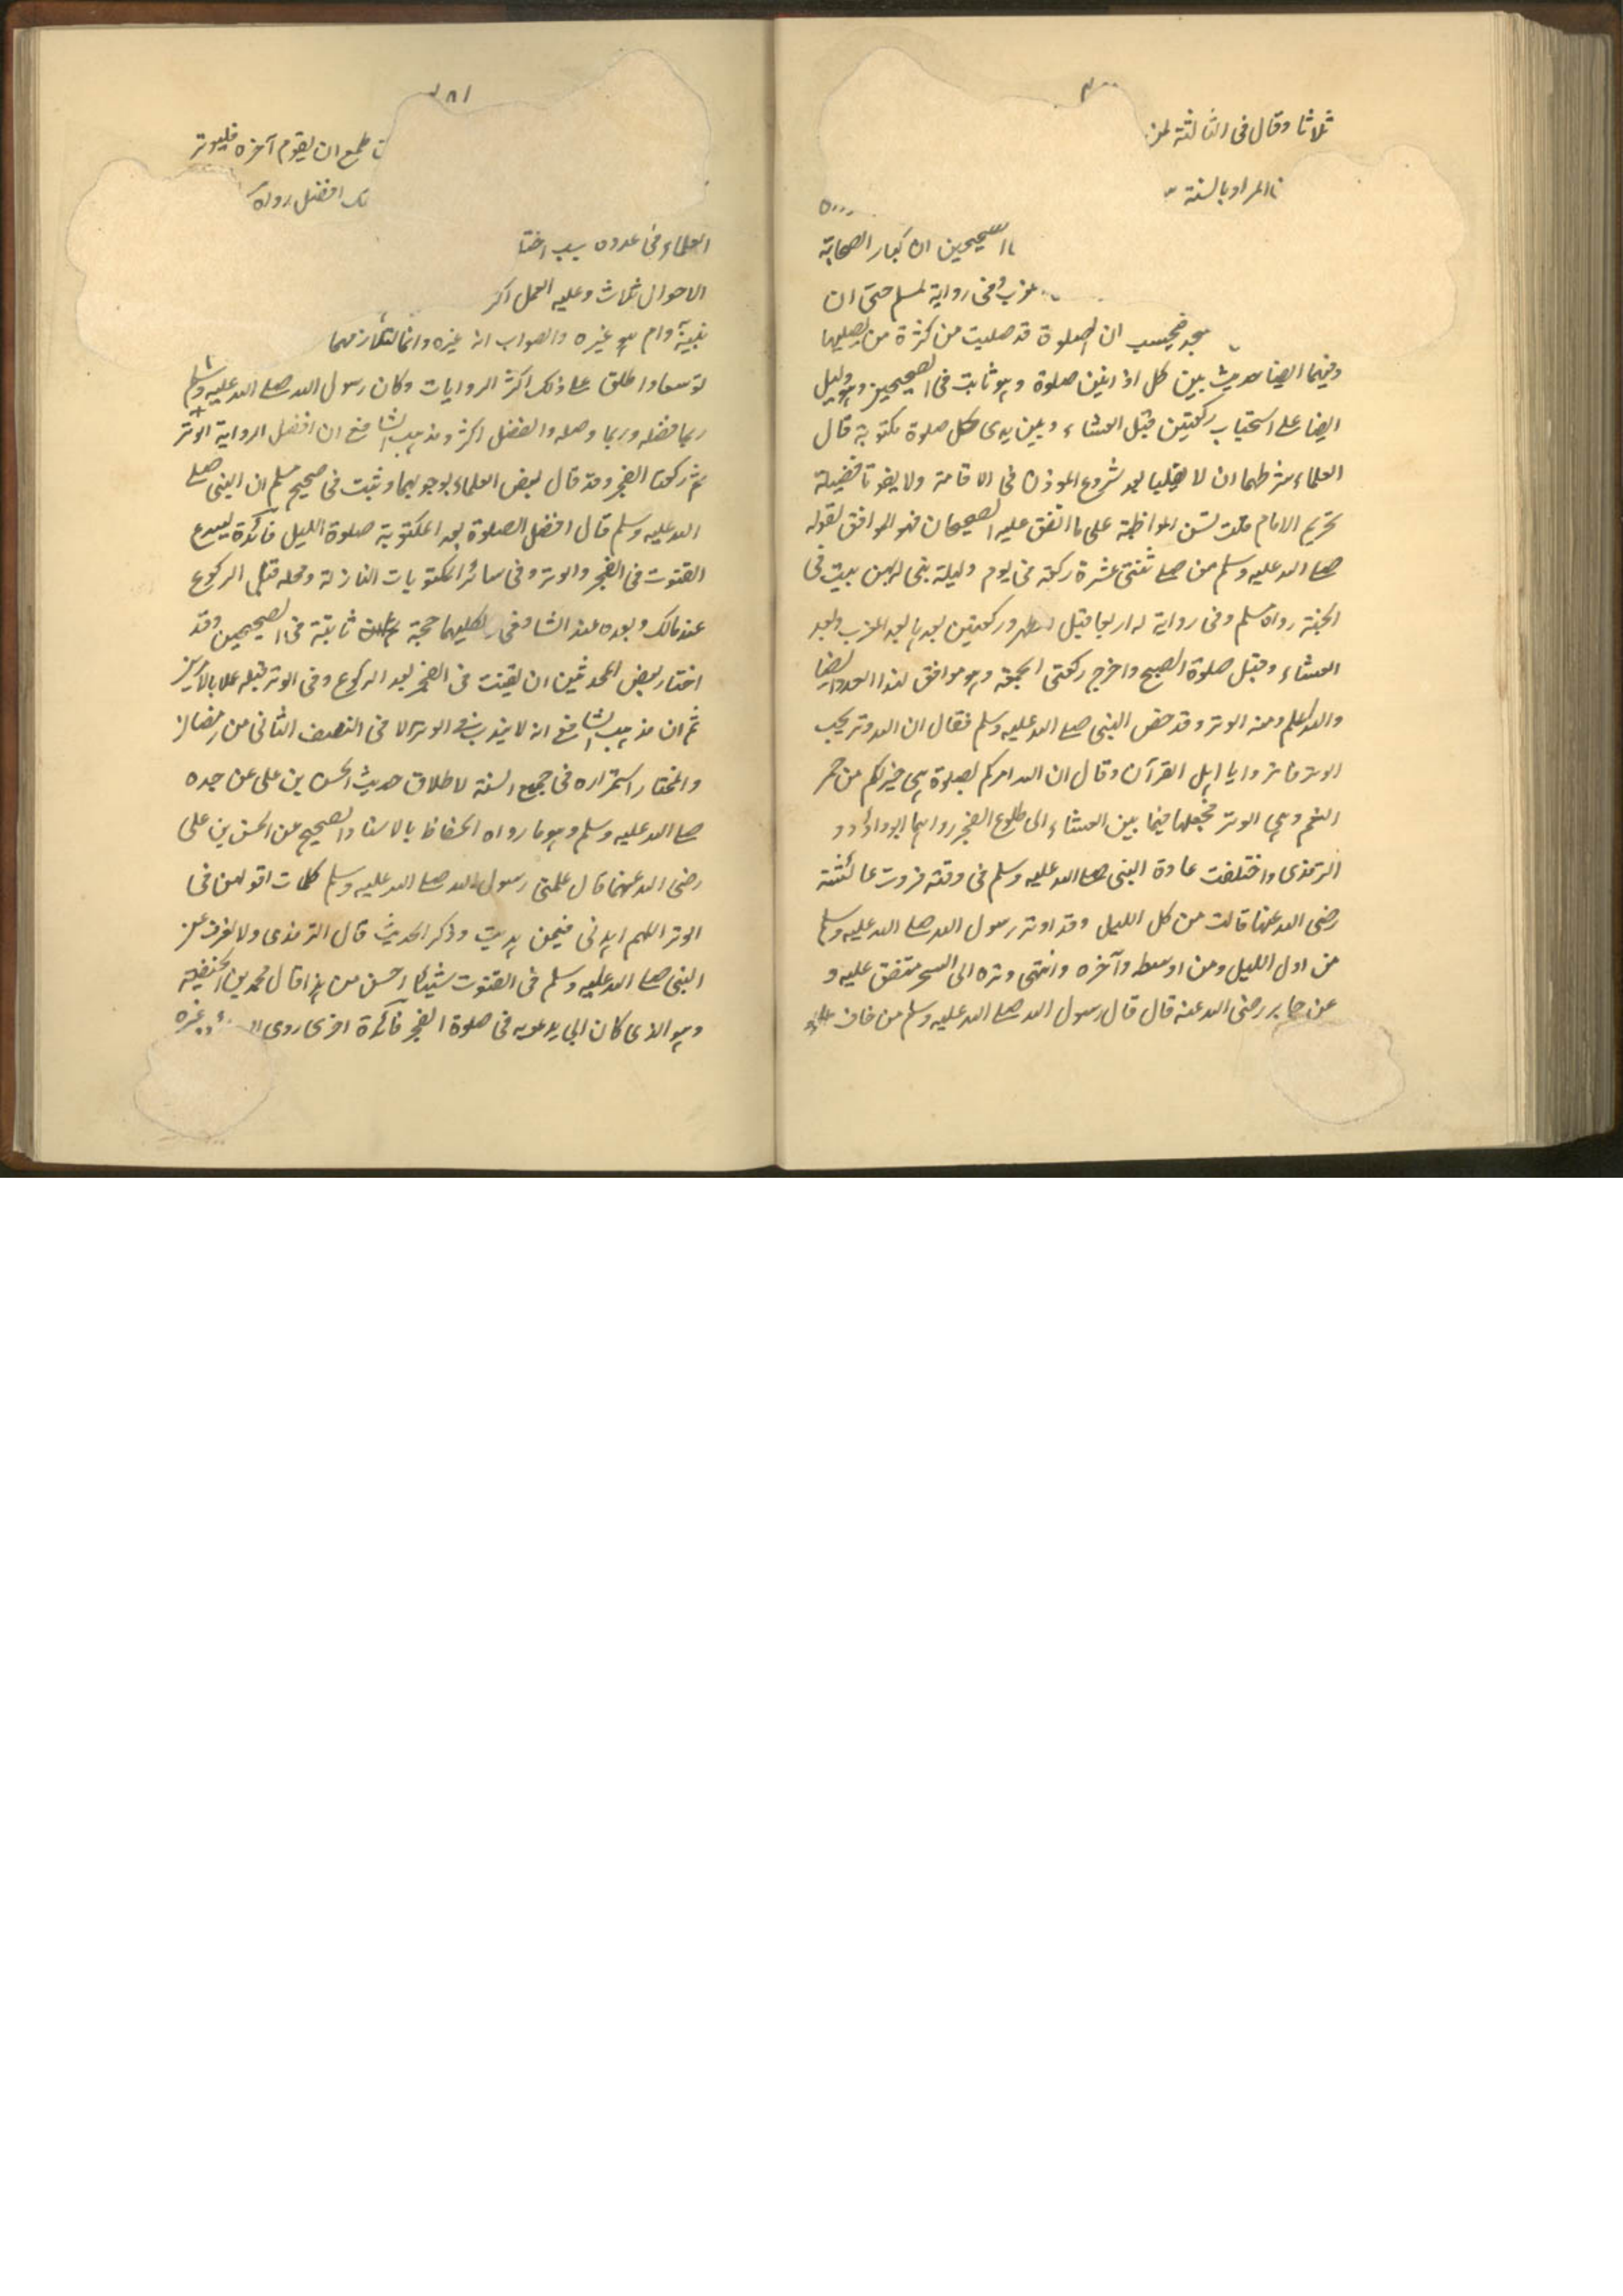 ثلاثا وقال فى الثالثة لمن
المراد بالسنة
الصحيحين ان كبار الصحابة
وفى رواية لمسلم حتى ان
فيحسب ان الصلوة قد صليت من كثرة من يصليهما
وفيهما ايضا حديث بين كل اذانين صلوة وهو ثابت فى الصحيحين وهو دليل
ايضا على استحباب ركعتين قبل العشاء وبين يدى كل صلوة مكتوبة قال
العلماء شرطهما ان لا يصليا بعد شروع الموذن فى الاقامة ولا يفوتا فضيلة
تحريم الامام قلت لسنن المواظبة على ما اتفق عليه الصحيحان فهو الموافق لقوله
صلى الله عليه وسلم من صلى ثنتى عشرة ركعة فى يوم وليلة بنى له بهن بيت فى
الجنة رواه مسلم وفى رواية له اربعا قبل الظهر وركعتين بعدها بعد المغرب وبعد
العشاء وقبل صلوة الصبح واخرج ركعتى الجمعة وهو موافق لهذا العدد ايضا
والله اعلم ومنه الوتر وقد حض النبى صلى الله عليه وسلم فقال ان الله وتر يحب
الوتر فاوتروا يا اهل القرآن وقال ان الله امركم بصلوة هى خير لكم من حمر
النعم وهى الوتر فجعلها فيما بين العشاء الى طلوع الفجر رواهما ابو داؤد و
الترمذى واختلفت عادة النبى صلى الله عليه وسلم فى وقته فروت عائشة
رضى الله عنها قالت من كل الليل وقد اوتر رسول الله صلى الله عليه وسلم
من اول الليل ومن اوسطه وآخره وانتهى وتره الى السحر متفق عليه و
عن جابر رضى الله عنه قال قال رسول الله صلى الله عليه وسلم من خاف
٢٨١
طمع ان يقوم آخره فليوتر
افضل رواه
العلماء فى عدده بسبب اختا
الاحوال ثلاث وعليه العمل اكثر
غيره والصواب انه غيره وانما لتلازمهما
توسعا واطلق على ذلك اكثر الروايات وكان رسول الله صلى الله عليه وسلم
ربما فصله وربما وصله والفضل اكثر ومذهب الشافع ان افضل الرواية الوتر
ثم ركعتا الفجر وقد قال بعض العلماء بوجوبهما وثبت فى صحيح مسلم ان النبى صلى
الله عليه وسلم قال افضل الصلوة بعد المكتوبة صلوة الليل فائدة يشرع
القنوت فى الفجر والوتر وفى سائر المكتوبات النازلة ومحله قبل الركوع
عند مالك وبعده عند الشافعى لكليهما حجة ثابتة فى الصحيحين وقد
اختار بعض المحدثين ان يقنت فى الفجر بعد الركوع وفى الوتر قبله عملا بالامرين
ثم ان مذهب الشافع انه لا يندب فى الوتر الا فى النصف الثانى من رمضان
والمختار استمراره فى جميع السنة لاطلاق حديث الحسن بن على عن جده
صلى الله عليه وسلم وهو ما رواه الحفاظ بالاسناد الصحيح عن الحسن بن على
رضى الله عنهما قال علمنى رسول الله صلى الله عليه وسلم كلمات اقولهن فى
الوتر اللهم اهدنى فيمن هديت وذكر الحديث قال الترمذى ولا نعرف عن
النبى صلى الله عليه وسلم فى القنوت شيئا احسن من هذا قال محمد بن الحنفية
وهو الذى كان ابى يدعو به فى صلوة الفجر فائدة اخرى روى